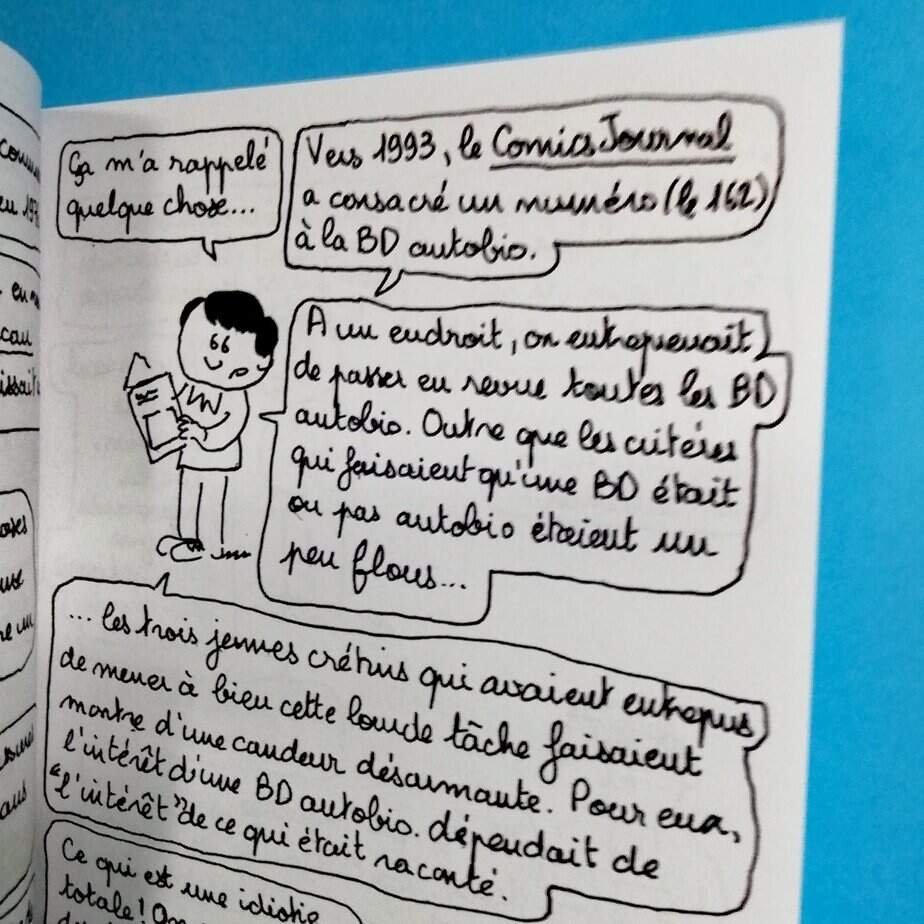 Ça m'a rappelé
quelque chose...
Vers 1993, le Comics Journal
a consacré un numéro (le 162)
à la BD autobio.
A un endroit, on entreprenait
de passer en revue toutes les BD
autobio. Outre que les critères
qui faisaient qu'une BD était
ou pas autobio étaient un
peu flous...
... les trois jeunes crétins qui avaient entrepris
de mener à bien cette lourde tâche faisaient
montre d'une candeur désarmante. Pour eux,
l'intérêt d'une BD autobio. dépendait de
"l'intérêt" de ce qui était raconté.
Ce qui est une idiotie
totale!